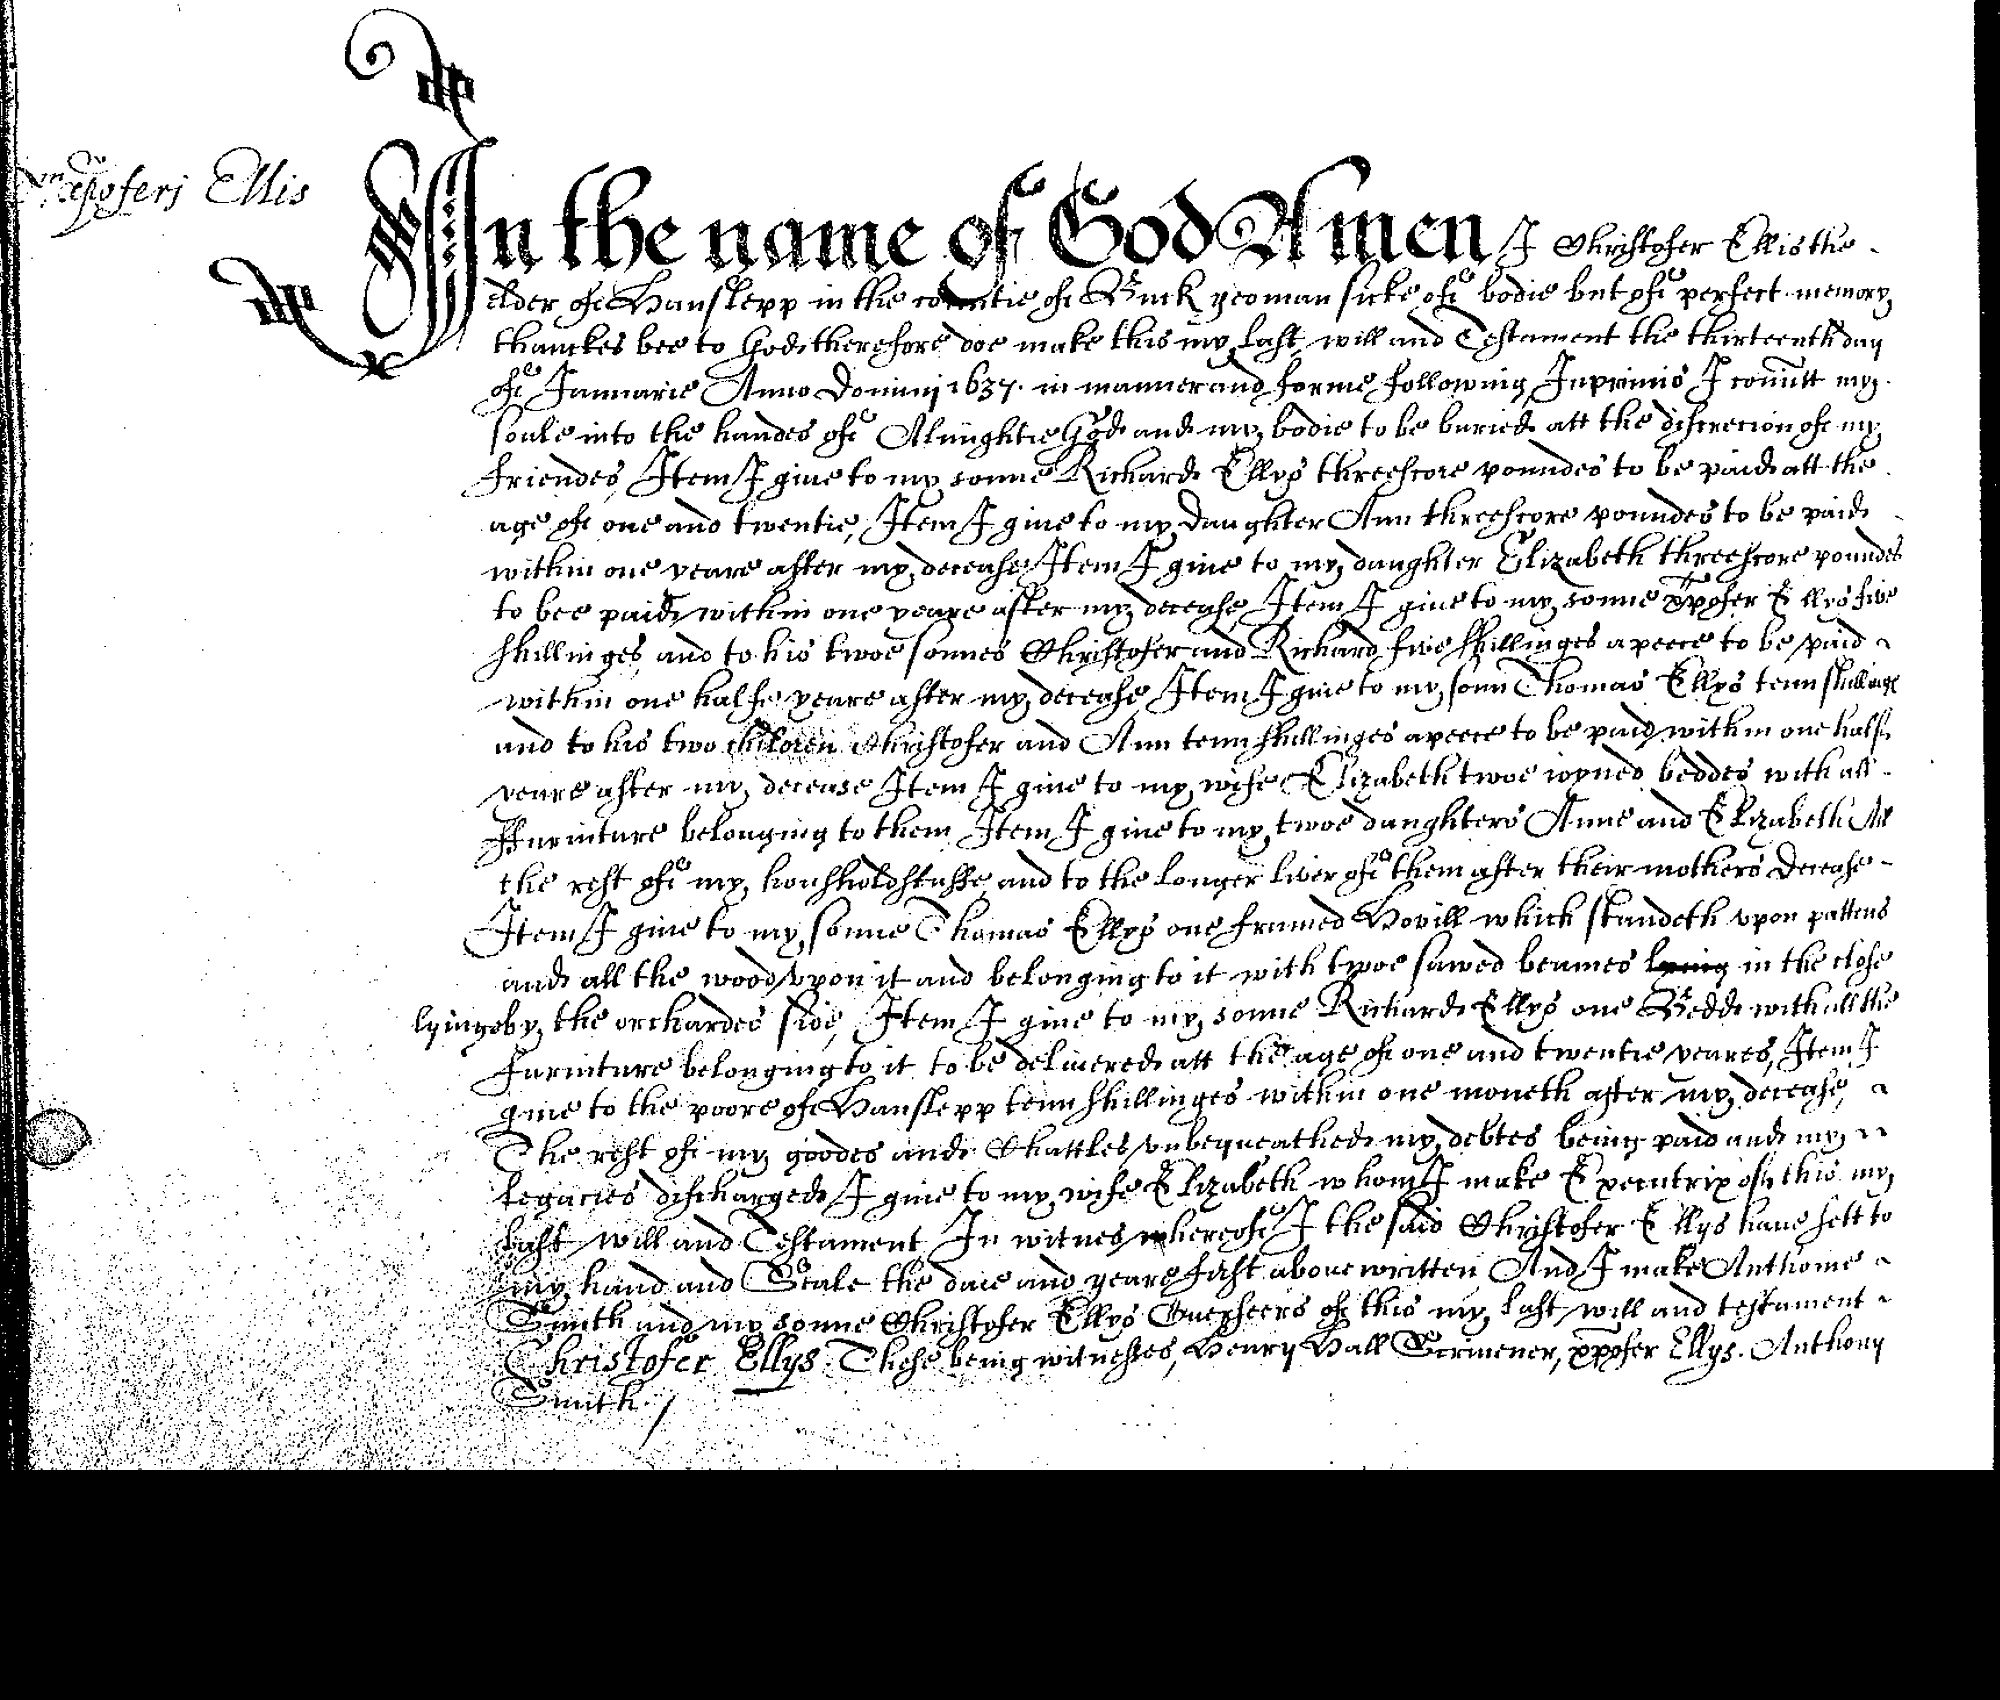 xpoferj Ellis
In the name of God Amen I Christofer Ellis the
elder of Hanslepp in the countie of Buck yeoman sicke of bodie but of perfect memory
thanckes bee to God therefore doe make this my last will and Testament the thirteenth day
of Januarie Anno Dominj 1637. in manner and forme following, Inprimis I comitt my
soule into the handes of Almightie God and my bodie to be buried att the discrecion of my
friendes, Item I give to my sonne Richard Ellys threescore poundes to be paid att the
age of one and twentie, Item I give to my daughter Ann threescore poundes to be paid
within one yeare after my decease, Item I give to my daughter Elizabeth threescore poundes
to bee paid within one yeare after my decease, Item I give to my sonne xpofer Ellys five
shillinges, and to his twoe sonnes Christofer and Richard five shillinges apeece to be paid
within one halfe yeare after my decease, Item I give to my sonn Thomas Ellys tenn shillinges
and to his two children Christofer and Ann tenn shillinges apeece to be paid within one halfe
yeare after my decease Item I give to my wife Elizabeth twoe ioyned beddes with all
ffurniture belonging to them Item I give to my twoe daughters Anne and Elizabeth All
the rest of my houshold stuffe, and to the longer liver of them after their mothers decease
Item I give to my sonne Thomas Ellys one framed Hovill which standeth vpon pattens
and all the wood vpon it and belonging to it with twoe sawed beames lyeing in the close
lyinge by the orchardes side, Item I give to my sonne Richard Ellys one Bedd with all the
furniture belonging to it to be delivered att the age of one and twentie yeares, Item I
give to the poore of Hanslepp tenn shillinges within one moneth after my decease,
The rest of my goodes and Chattles vnbequeathed my debtes being paid and my
legacies discharged I give to my wife Elizabeth whom I make Executrix of this my
last will and Testament In witnes whereof I the said Christofer Ellys have sett to
my hand and Seale the daie and yeare first above written And I make Anthonie
Smith and my sonne Christofer Ellys Overseers of this my last will and testament
Christofer Ellys. These being witnesses, Henry Hall Scrivener, xpofer Ellys. Anthony
Smith./